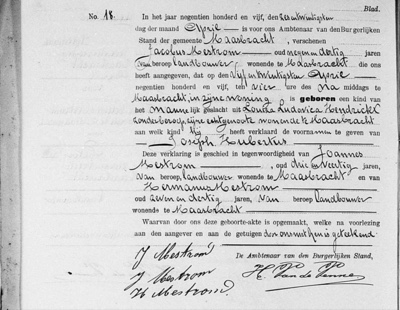 Blad.
No. 18. In het jaar negentien honderd en vijf, den zes en twintigsten
dag der maand April — is voor ons Ambtenaar van den Burgerlijken
Stand der gemeente Maasbracht, verschenen
Jacobus Mestrom — oud negen en dertig jaren
van beroep landbouwer wonende te Maasbracht die ons
heeft aangegeven, dat op den vijf en twintigsten April
negentien honderd en vijf, ten vier ure des na middags te
Maasbracht, in zijne woning is geboren een kind van
het mannelijk geslacht uit Louisa Ludovica Hendrickx
zonder beroep, zijne echtgenoote wonende te Maasbracht
aan welk kind hij heeft verklaard de voornamen te geven van
— Joseph Hubertus —
Deze verklaring is geschied in tegenwoordigheid van Joannes
Mestrom — oud drie en veertig jaren,
van beroep landbouwer wonende te Maasbracht en van
Hermanus Mestrom —
oud zeven en dertig jaren, van beroep landbouwer
wonende te Maasbracht —
Waarvan door ons deze geboorte-akte is opgemaakt, welke na voorlezing
aan den aangever en aan de getuigen door ons met hen is geteekend.
J Mestrom De Ambtenaar van den Burgerlijken Stand,
J Mestrom H. Van de Venne
H Mestrom